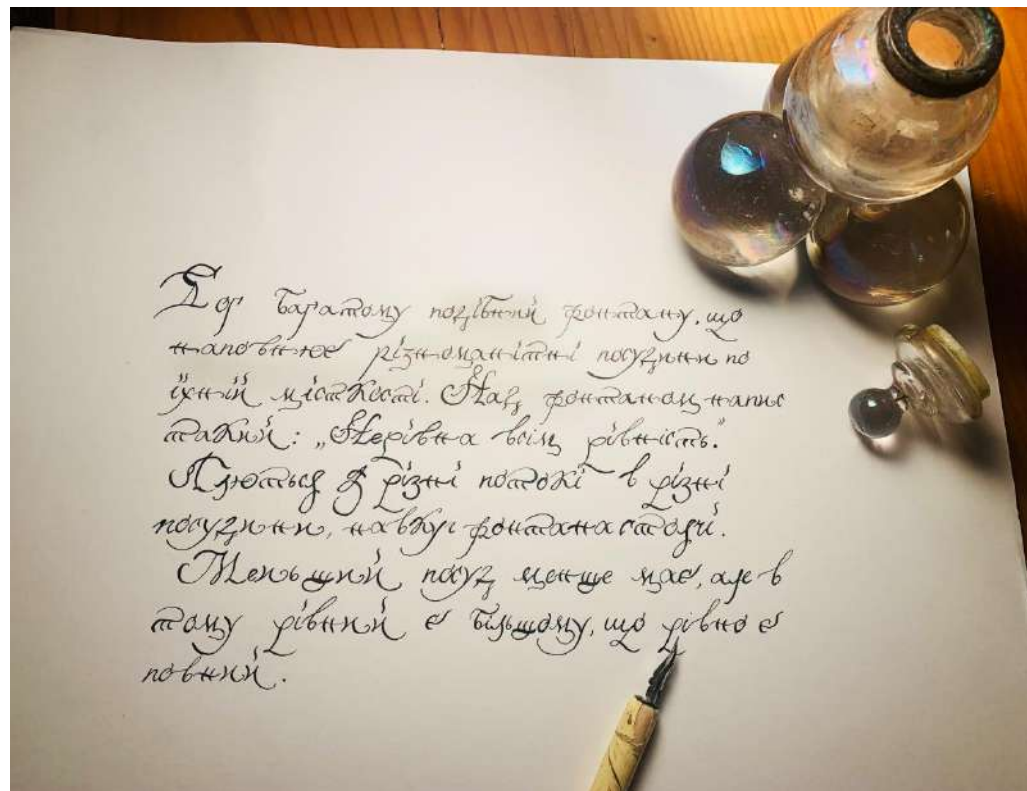 Бог багатому подібний фонтану, що
наповнює різноманітні посудини по
їхній місткості. Над фонтаном напис
такий: „Нерівна всім рівність."
Ллються з різні потокі в різні
посудини, навкуг фонтана стоячі.
Меньший посуд менше має, але в
тому рівний є більшому, що рівно є
повний.